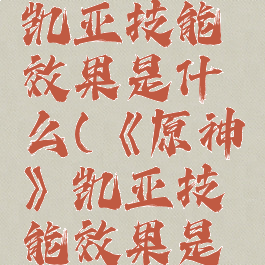 凯亚技能
效果是什
么(《原神
》凯亚技
能效果是